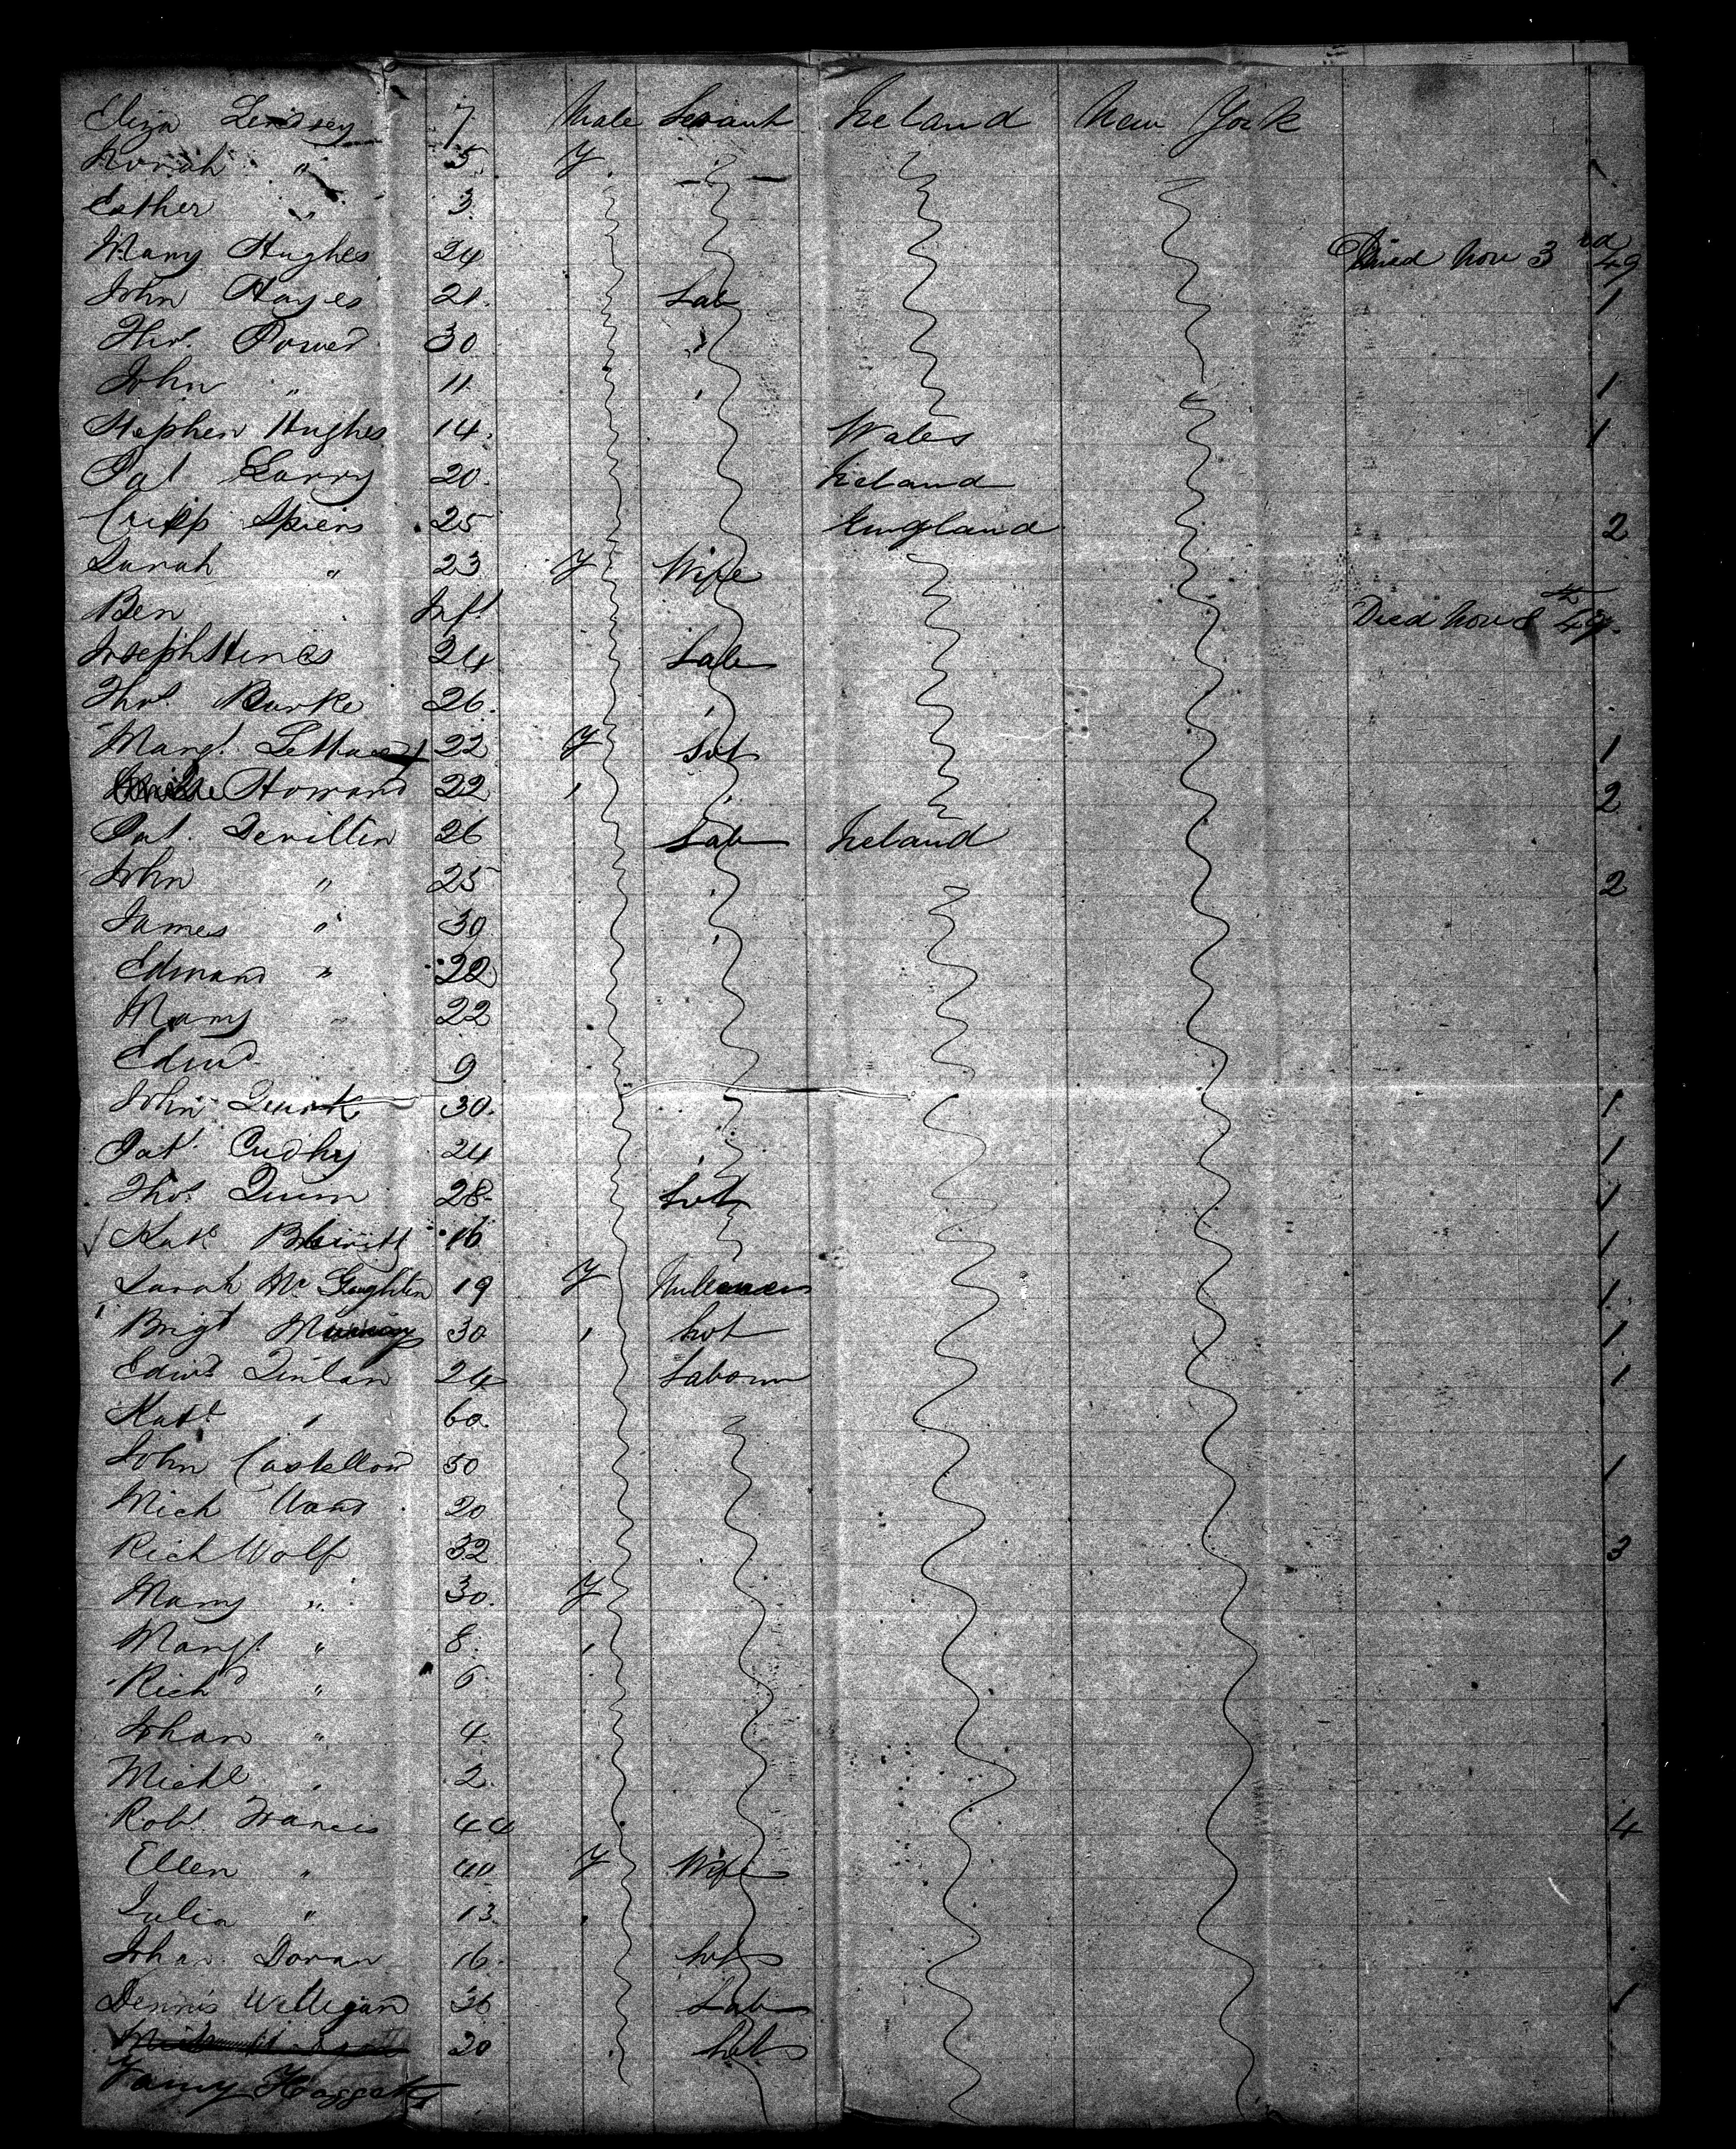 Eliza Lindsey 7 Male Servant Ireland New York
Norah " 5 F
Esther " 3
Mary Hughes 24 Died Nov 3rd 49
John Hayes 21 Lab 1
Thos. Power 30 "
John " 11 1
Stephen Hughes 14 Wales 1
Pat Larry 20 Ireland
Cripp Spiers 25 England 2
Sarah " 23 F Wife
Ben Inft Died Nov 8th 49
Joseph Hines 24 Lab
Thos. Burke 26
Margt. 22 F Svt 1
Howard 22 2
Pat. Devillin 26 Lab Ireland
John " 25 2
James " 30
Edmand " 22
Mary " 22
Edmd 9
John 30 1
Pat. Cudhy 24 1
Thos. Quinn 28 Svt 1
Kate 16 1
Sarah McGloughlin 19 F 1
Brigt Murray 30 Svt 1
Edwd Quinlan 24 Labour 1
Kate " 60
John Castellow 50 1
Mich Ward 20
Rich Wolf 32 3
Mary " 30 F
Margt " 8
Richd " 6
Johan " 4
Michl " 2
Robt. Francis 44 4
Ellen " 40 F Wife
Julia " 13
Johan Doran 16 Svt
Dennis Willigan 36 Lab 1
20 Svt
Fanny